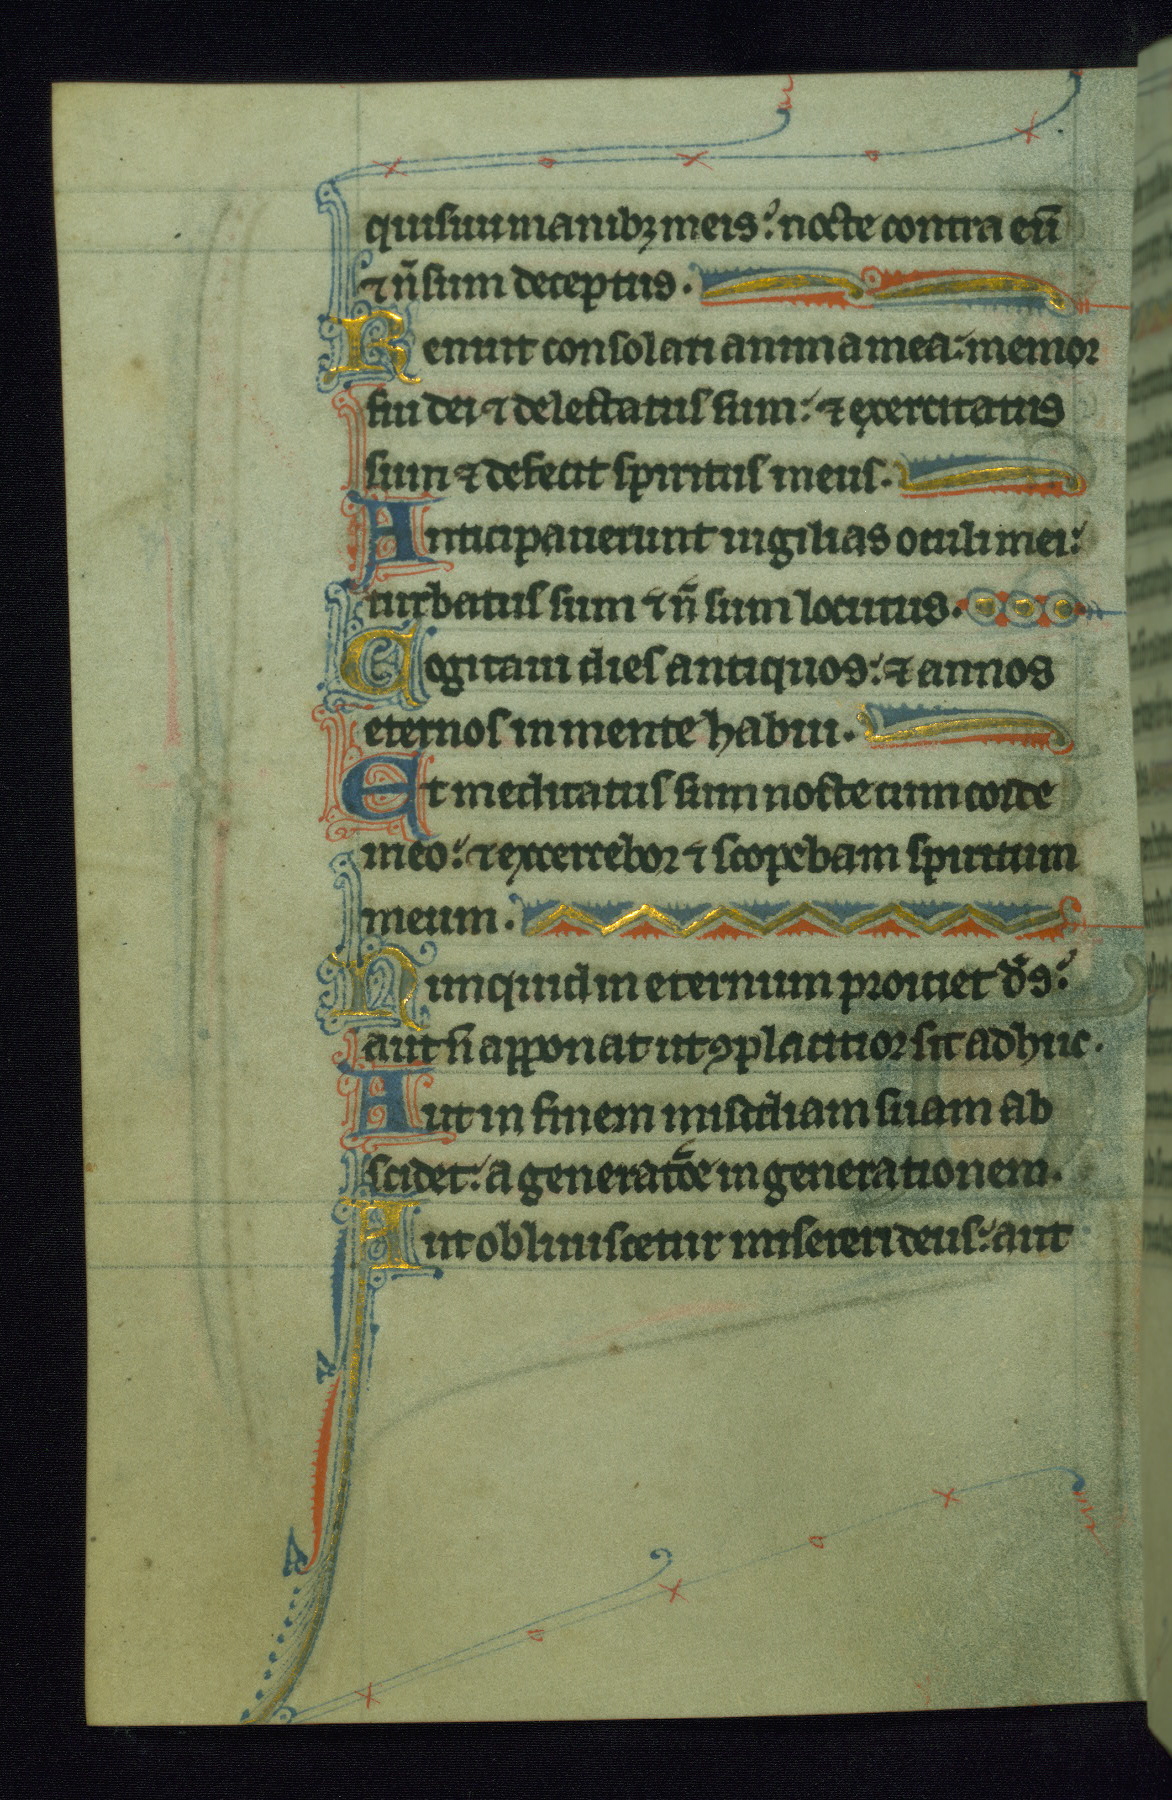 quisiui manibꝫ meis: nocte contra eū
⁊ n̄ sum deceptus.
Renuit consolari anima mea: memor
fui dei ⁊ delectatus sum: ⁊ exercitatus
sum ⁊ defecit spiritus meus.
Anticipauerunt uigilias oculi mei:
turbatus sum ⁊ n̄ sum locutus.
Cogitaui dies antiquos: ⁊ annos
eternos in mente habui.
Et meditatus sum nocte cum corde
meo: ⁊ exercebor ⁊ scopebam spiritum
meum.
Nunquid in eternum proiciet d̄s:
aut n̄ apponat ut ꝯplacitior sit adhuc.
Aut in finem mis̄cdiam suam ab
scidet: a generatōe in generationem.
Aut obliuiscetur misereri deus: aut